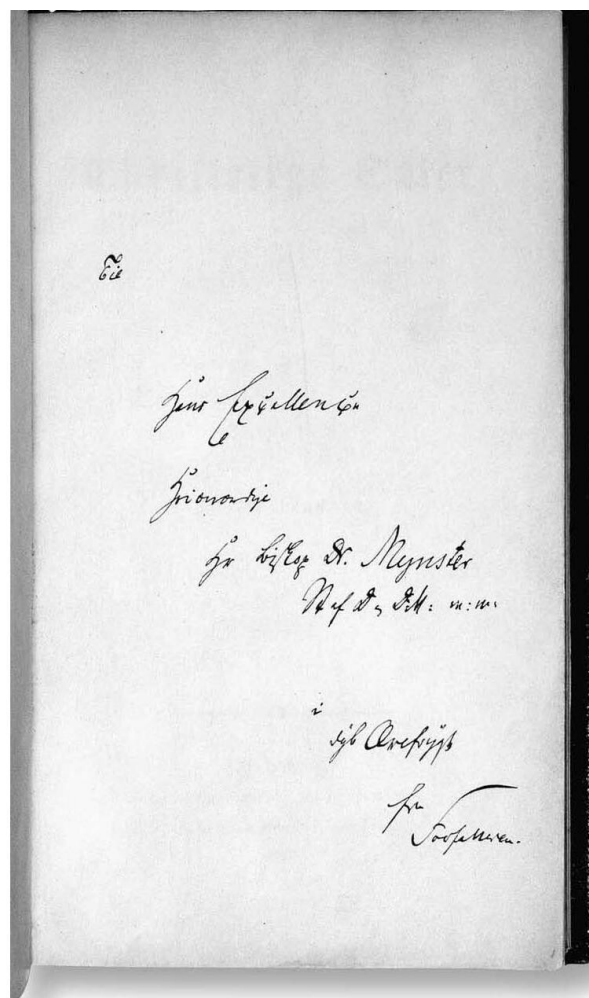 Til
Hans Excellence
Høiærværdige
Hr Biskop Dr. Mynster
St. af D. og D: M: m: m:
i
dyb Ærefrygt
fra
Forfatteren.